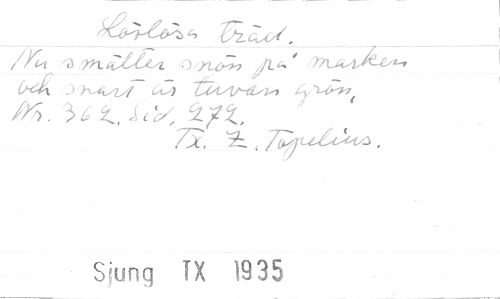 Lövlösa träd.
Nu smälter snön på marken
och snart är tuvan grön,
Nr. 362. Sid. 272.
Tx. Z. Topelius.
Sjung TX 1935